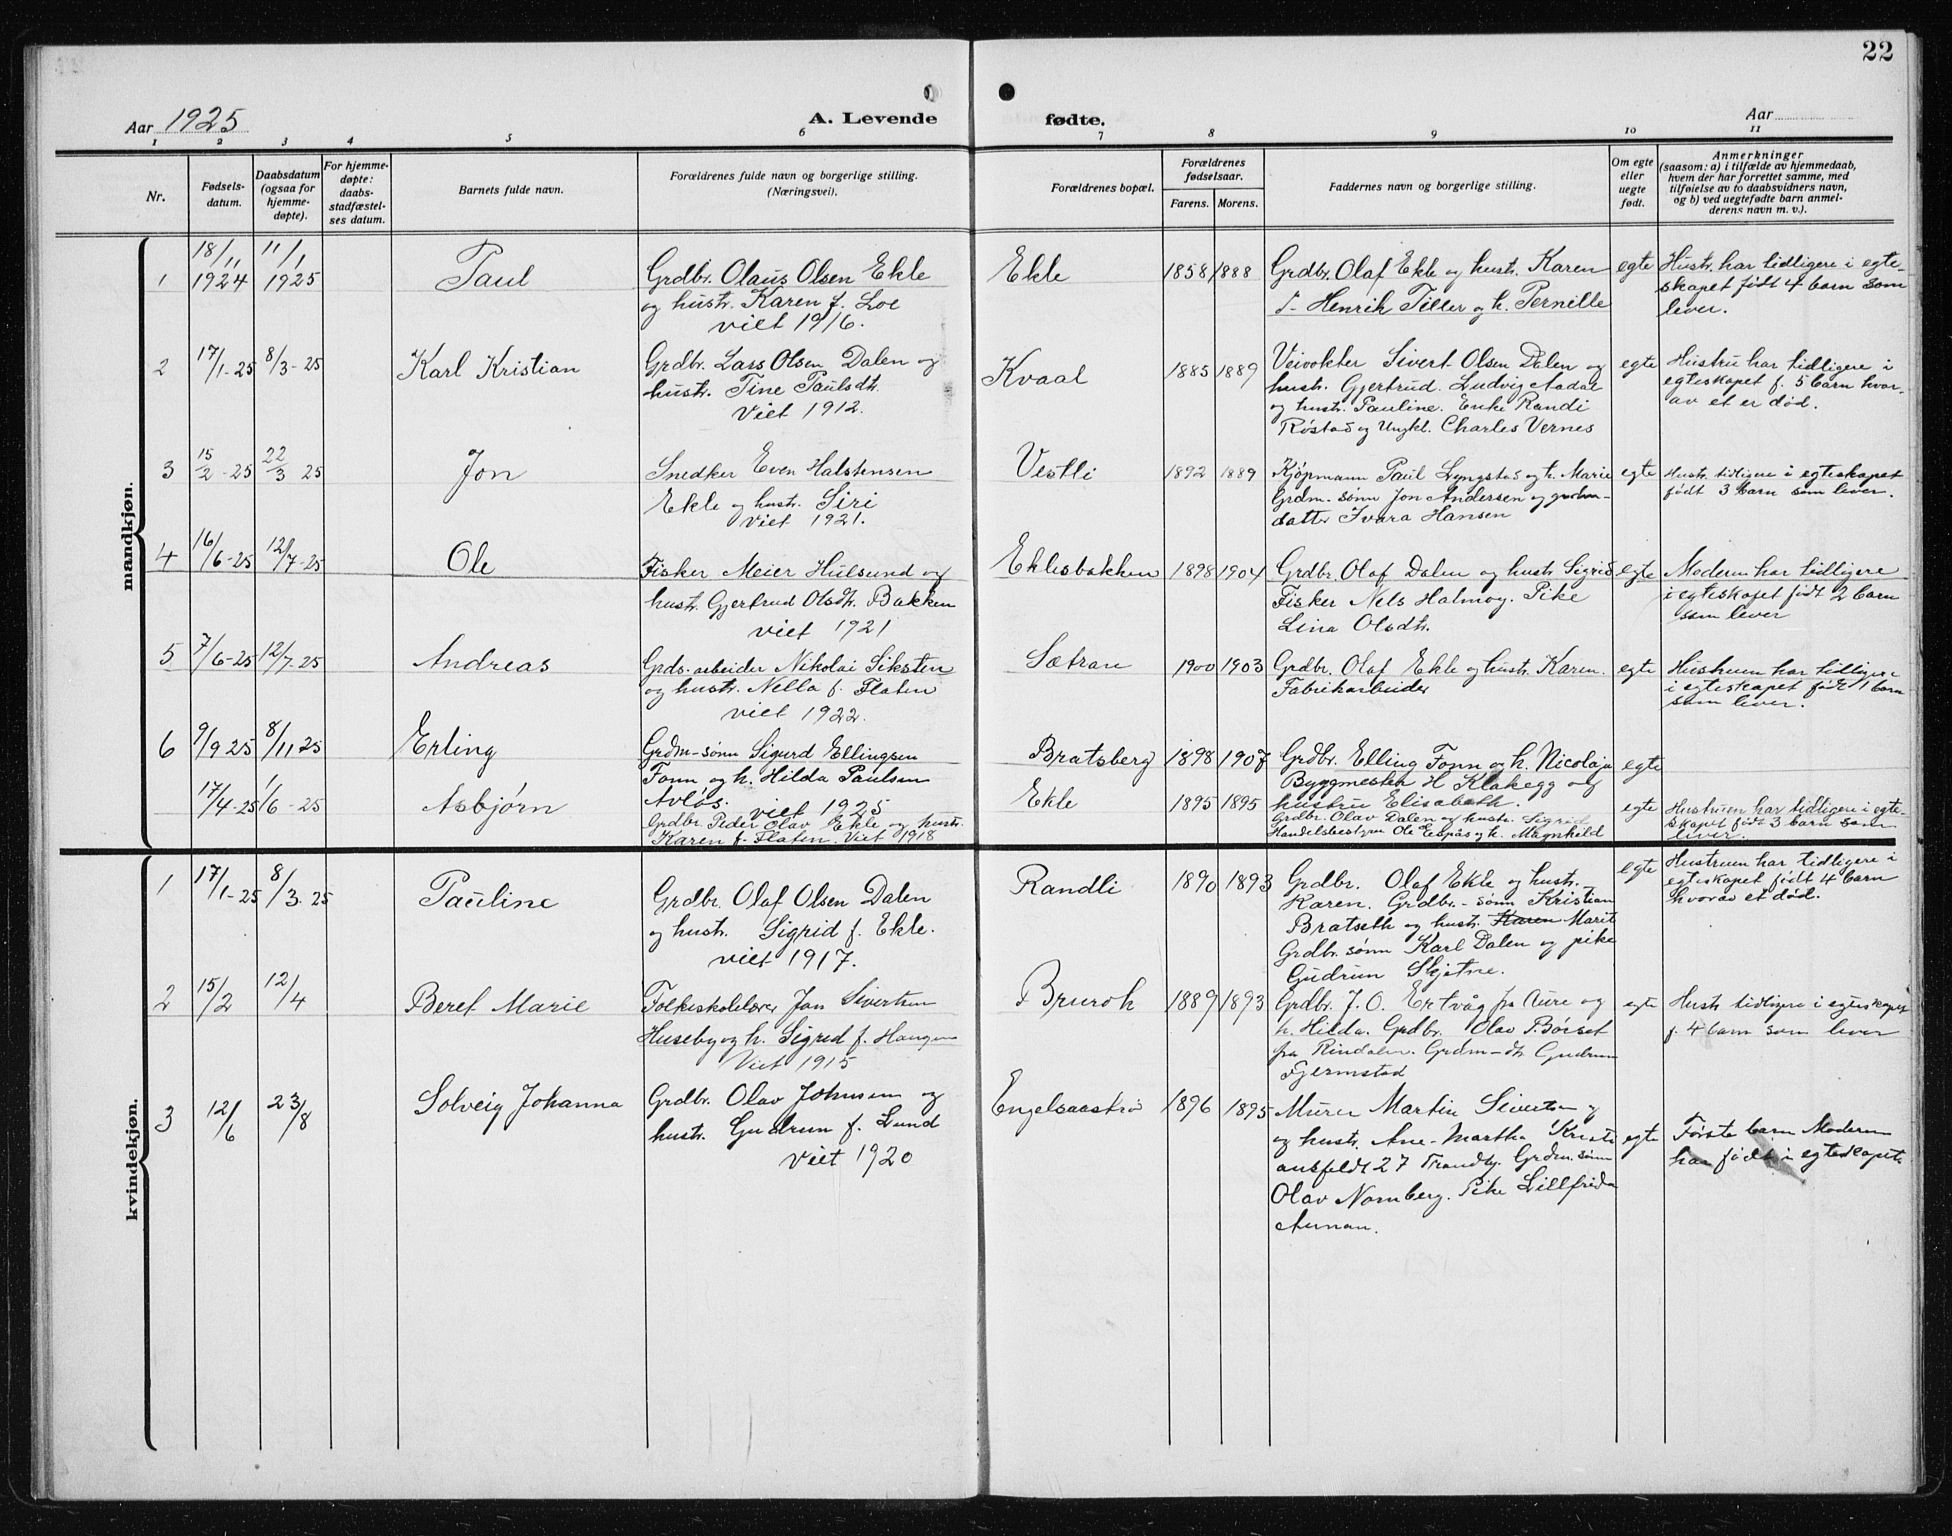 22
Aar 1925
A. Levende
fødte.
Aar
1 2 3 4 5 6 7 8 9 10 11
Nr.
Fødsels-
datum.
Daabsdatum
(ogsaa for
hjemme-
døpte).
For hjemme-
døpte:
daabs-
stadfæstel-
ses datum.
Barnets fulde navn.
Forældrenes fulde navn og borgerlige stilling.
(Næringsvei).
Forældrenes bopæl.
Forældrenes
fødselsaar.
Farens. Morens.
Faddernes navn og borgerlige stilling.
Om egte
eller
uegte
født.
Anmerkninger
(saasom: a) i tilfælde av hjemmedaab,
hvem der har forrettet samme, med
tilføielse av to daabsvidners navn,
og b) ved uegtefødte barn anmel-
derens navn m. v.).
mandkjøn.
1
18/11
1924
11/1
1925
Paul
Grdbr. Olaus Olsen Ekle
og hustr. Karen f. Loe
viet 1916.
Ekle
1858 1888
Grdbr. Olaf Ekle og hustr. Karen
Henrik Tiller og h. Pernille
egte
Hustr. har tidligere i egte-
skapet født 4 barn som
lever.
2
17/1-25
8/3-25
Karl Kristian
Grdbr. Lars Olsen Dalen og
hustr. Tine Paulsdt.
Viet 1912.
Kvaal
1885 1889
Veivokter Sivert Olsen Dalen og
hustr. Gjertrud. Ludvig Aadal
og hustr. Pauline. Enke Randi
Røstad og Ungkl. Charles Vernes
egte
Hustru har tidligere i
egteskapet f. 5 barn hvor-
av et er død.
3
15/2-25
22/3 25
Jon
Snedker Even Halstensen
Ekle og hustr. Siri
Viet 1921.
Vestli
1892 1889
Kjøpmann Paul Lyngstad og h. Marie
Grdm. sønn Jon Andersen og
datter Ivara Hansen
egte
Hustr. tidligere i egteskapet
født 3 barn som lever.
4
16/6-25
12/7-25
Ole
Fisker Meier Hulsund og
hustr. Gjertrud Olsdt. Bakken
viet 1921
Eklesbakken
1898 1904
Grdbr. Olaf Dalen og hustr. Sigrid
Fisker Nels Halmøy. Pike
Lina Olsdtr.
egte
Moderen har tidligere
i egteskapet født 2 barn
som lever
5
7/6-25
12/7-25
Andreas
Grds. arbeider Nikolai Siksten
og hustr. Nella f. Flaten
viet 1922.
Sætran
1900 1903
Grdbr. Olaf Ekle og hustr. Karen.
Fabrikarbeider
egte
Hustruen har tidligere
i egteskapet født 1 barn
som lever.
6
9/9 25
8/11 25
Erling
Grdm-sønn Sigurd Ellingsen
Fonn og h. Hilda Paulsen
Avløs. viet 1925
Bratsberg
1898 1907
Grdbr. Elling Fonn og h. Nicolaja
Byggmester H Klakegg og
hustru Elisabeth.
egte
17/4-25
1/6-25
Asbjørn
Grdbr. Peder Olav Ekle og hustr.
Karen f. Flaten. Viet 1918
Ekle
1895 1895
Grdbr. Olav Dalen og hustr. Sigrid
Handelsbestyrer Ole Espås og h. Magnhild
egte
Hustruen har tidligere i egte-
skapet født 3 barn som
lever.
kvindekjøn.
1
17/1-25
8/3-25
Pauline
Grdbr. Olaf Olsen Dalen
og hustr. Sigrid f. Ekle.
viet 1917.
Randli
1890 1893
Grdbr. Olaf Ekle og hustr.
Karen. Grdbr.-sønn Kristian
Bratseth og hustr. Karen Marit
Grdbr. sønn Karl Dalen og pike
Gudrun Skjetne.
egte
Hustruen har tidligere i
egteskapet født 4 barn
hvorav et død.
2
15/2
12/4
Beret Marie
Folkeskolelærer Jon Sivertsen
Huseby og h. Sigrid f. Haugen
Viet 1915
Brurok
1889 1893
Grdbr. J. O. Ertvåg fra Aure og
h. Hilda. Grdbr. Olav P. Børset
fra Rindalen. Grdm-dt. Gudrun
Gjermstad
egte
Hustr. tidligere i egteskapet
f. 4 barn som lever
3
12/6
23/8
Solveig Johanna
Grdbr. Olav Johnsen og
hustr. Gudrun f. Lund
Viet 1920
Engelsaastrø
1896 1895
Murer Martin Sivertsen og
og hustr. Ane-Martha Kristi
ansfeldt 27 Trondhj. Grdm. sønn
Olav Nornberg. Pike Lillfrida
Aunan.
egte
Første barn Moderen
har født i egteskapet.